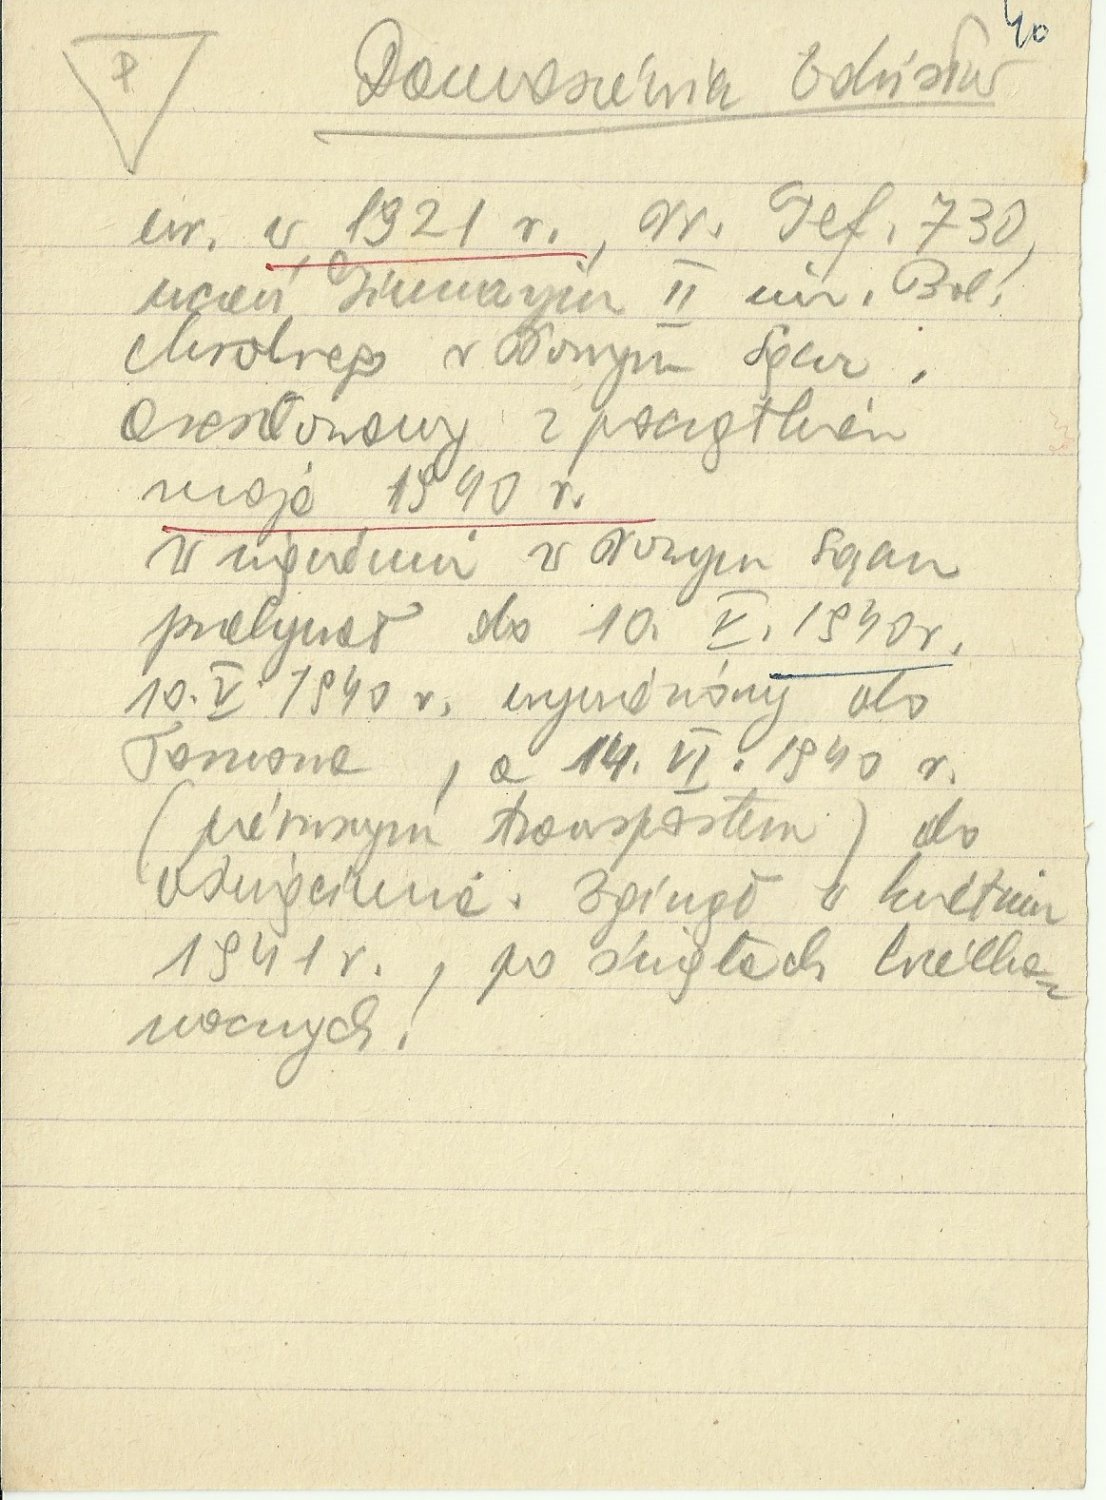 40
P
Domasiewicz Zdzisław
ur. w 1921 r., Nr. Gef. 730,
uczeń Gimnazjum II im. Bol.
Chrobrego w Nowym Sączu,
aresztowany z początkiem
maja 1940 r.
W więzieniu w Nowym Sączu
przebywał do 10. V. 1940 r.
10. V. 1940 r. wywieziony do
Tarnowa, a 14. VI. 1940 r.
(pierwszym transportem) do
Oświęcimia. Zginął w kwietniu
1941 r., po świętach Wielka-
nocnych.